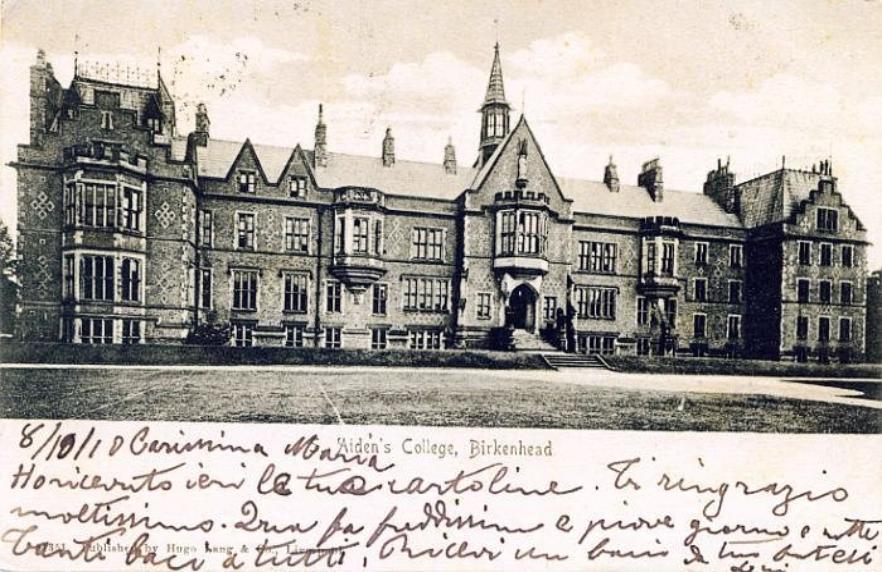 8/10/10 Carissima Maria
Aiden's College, Birkenhead.
Ho ricevuto ieri le tue cartoline. Ti ringrazio
moltissimo. Qua fa freddissimo e piove giorno e notte
Published by Hugo Lang & Co., Liverpool.
Tanti baci a tutti, Ricevi un bacio da tuo